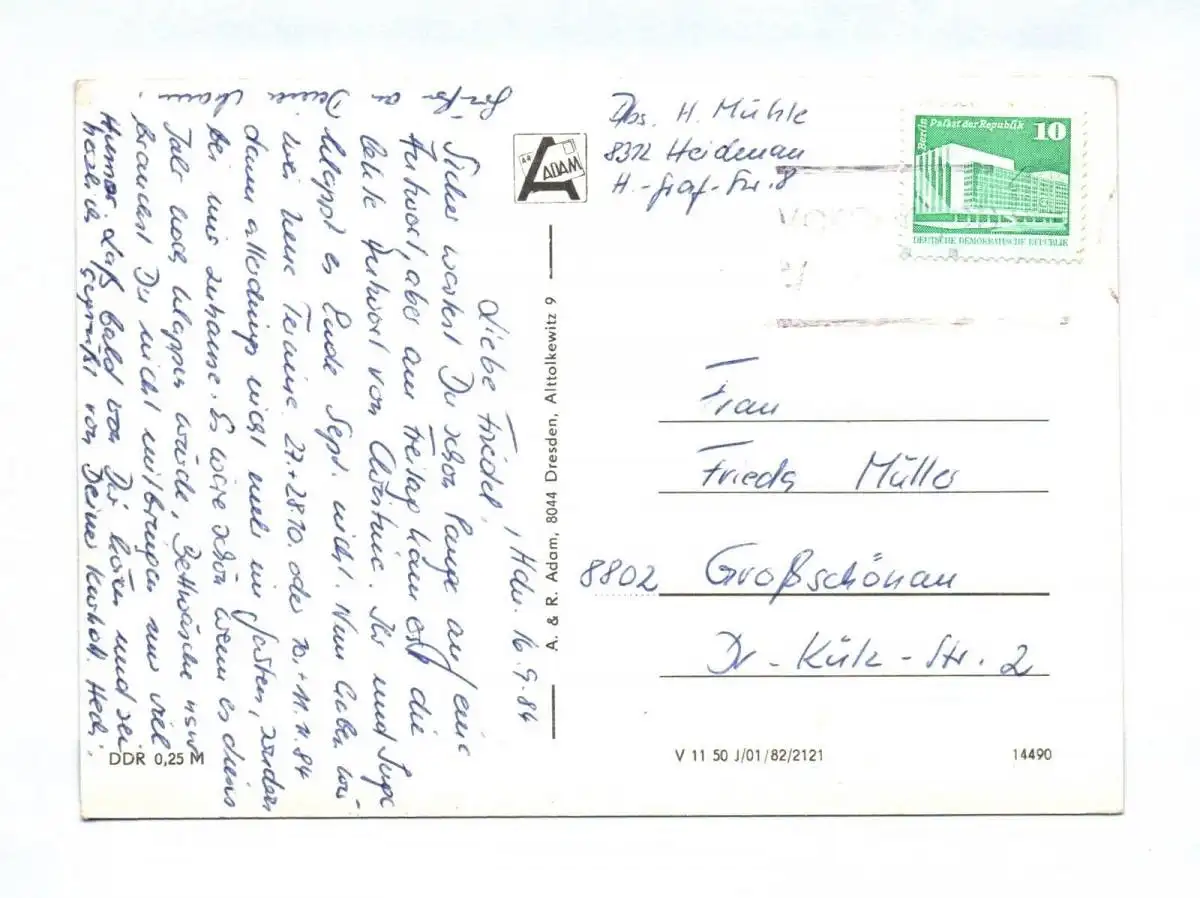 Liebe Friedel, Hdn. 16.9.84
Sicher wartest Du schon lange auf eine
Antwort, aber am Freitag kam erst die
letzte Antwort von Christine. Ihr und Inge
klappt es Ende Sept. nicht. Nun haben wir
zwei neue Termine 27.+28.10. oder 10.+11.11.84
dann allerdings nicht mehr im Garten, sondern
bei mir zuhause. Es wäre schön wenn es dieses
Jahr noch klappen würde, Bettwäsche usw
brauchst Du nicht mitbringen nur viel
Humor. Laß bald von Dir hören und sei
herzlich gegrüßt von Deiner Hedi.
Grüße an Deinen Mann.
A ADAM
A. & R. Adam, 8044 Dresden, Alttolkewitz 9
Abs. H. Mühle
8312 Heidenau
H.-Graf-Str. 8
Berlin Palast der Republik 10
DEUTSCHE DEMOKRATISCHE REPUBLIK
Frau
Frieda Müller
8802 Großschönau
Dr.-Külz-Str. 2
DDR 0,25 M
V 11 50 J/01/82/2121
14490